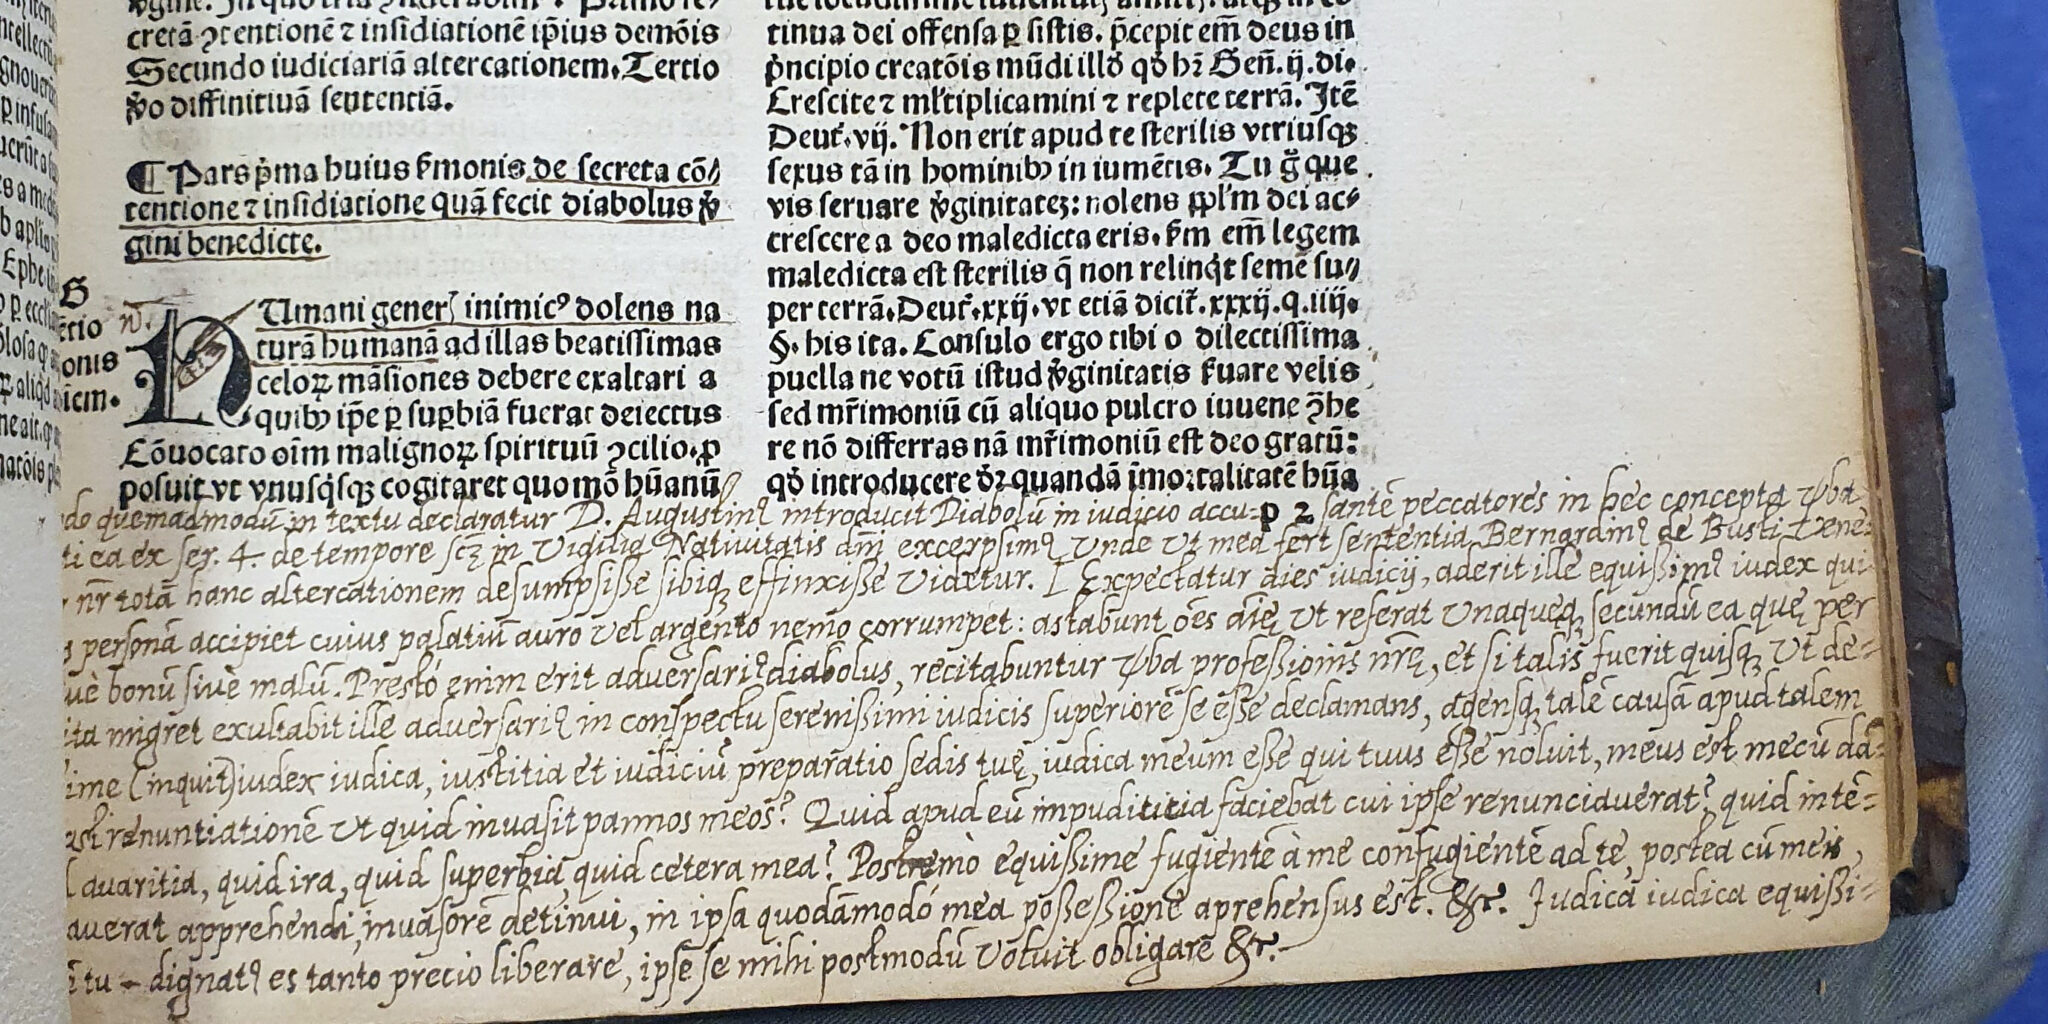 cretā ꝯtentionē ⁊ insidiationē ip̄ius demōis
Secundo iudiciariā altercationem. Tertio
v̊o diffinitiuā sententiā.
¶ Pars p̊ma huius s̄monis de secreta cō⸗
tentione ⁊ insidiatione quā fecit diabolus v̊
gini benedicte.
HUmani generꝭ inimicꝰ dolens na
turā humanā ad illas beatissimas
celoꝝ māsiones debere exaltari a
quibꝰ ip̄e ꝑ suꝑbiā fuerat deiectus
Cōuocato oīm malignoꝝ spirituū ꝯcilio. ꝓ
posuit vt vnusq̇sqꝫ cogitaret quomō hūanū
tinua dei offensa ꝑsistis. p̄cepit em̄ deus in
p̊ncipio creatōis mūdi illd̓ qd̓ hr̄ Gen̄. ij. di.
Crescite ⁊ ml̓tiplicamini ⁊ replete terrā. Itē
Deut̓. vij. Non erit apud te sterilis vtriusqꝫ
sexus tā in hominibꝰ in iumētis. Tu g̊ que
vis seruare v̊ginitateꝫ: nolens ppl̓m dei ac⸗
crescere a deo maledicta eris. s̄m em̄ legem
maledicta est sterilis q̄ non relinq̇t semē su⸗
per terrā. Deut̓. xxij. vt etiā dicit̓. xxxij. q. iiij.
§. his ita. Consulo ergo tibi o dilectissima
puella ne votū istud v̊ginitatis s̓uare velis
sed mr̄imoniū cū aliquo pulcro iuuene ꝯ̄he
re nō differras nā mr̄imoniū est deo gratū:
qd̓ introducere d̓r quandā īmortalitatē hūa
P 2
quemadmodū in textu declaratur D. Augustinꝰ introducit Diabolū in iudicio accu= santē peccatores in hec concepta v̓ba
ea ex ser. 4. de tempore scꝫ in Vigilia Natiuitatis dn̄i excerpsimꝰ Unde Ut mea fert sententia Bernardinꝰ de Busti
nr̄ totā hanc altercationem desumpsisse sibiqꝫ effinxisse Videtur. [ Expectatur dies iudicij, aderit ille equissimꝰ iudex qui
personā accipiet cuius palatiū auro vel argento nemo corrumpet: astabunt oēs aīę Ut referat Unaquęqꝫ secundū ea quę per
bonū sive malū. Presto enim erit adversariꝰ diabolus, recitabuntur v̓ba professionis nr̄ę, et si talis fuerit quisqꝫ Ut de=
ita migret exultabit ille adversariꝰ in conspectu serenissimi iudicis superiorē se esse declamans, agensqꝫ talē causā apud talem
(inquit) iudex iudica, iustitia et iudiciū preparatio sedis tuę, iudica meum esse qui tuus esse noluit, meus est mecū da=
renuntiationē Ut quid invasit pannos meos? Quid apud eū impudititia faciebat cui ipse renunciaverat? quid intē=
avaritia, quid ira, quid superbia quid cetera mea? Postremò equissime fugientē à me confugientē ad te, postea cū meis,
apprehendi, invasorē detinui, in ipsa quodāmodó mea possessionē aprehensus est. &c. Judica iudica equissi=
tu dignatꝰ es tanto precio liberare, ipse se mihi postmodū Voluit obligare &c.